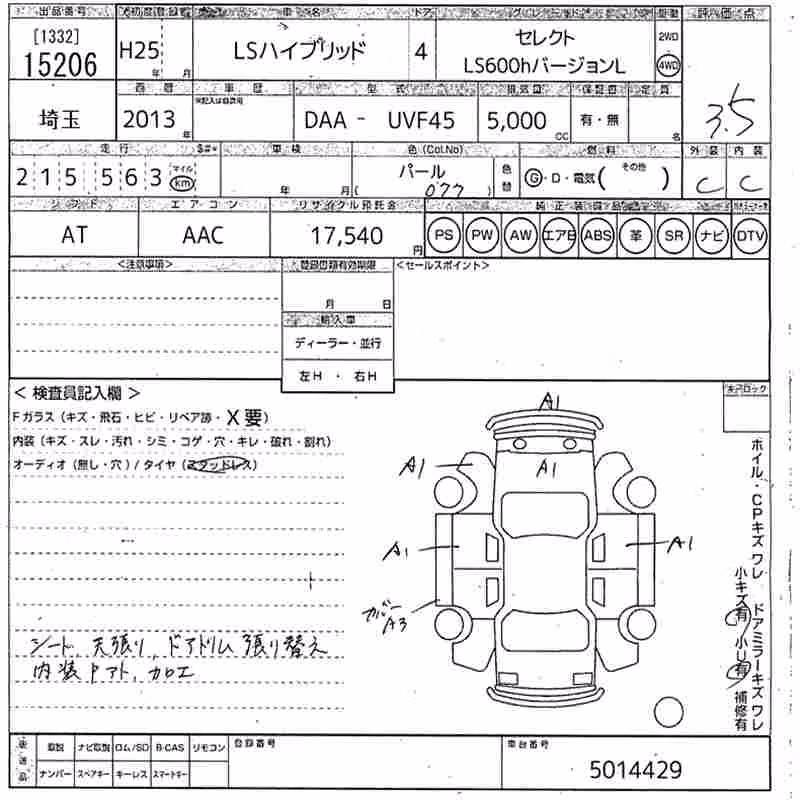 出品番号 初度登録 車名 ドア グレード 評価点
[1332]
15206
H25 年 月
LSハイブリッド
4
セレクト
LS600hバージョンL
2WD
4WD
3.5
西暦 車歴 型式 排気量 保証書 定員
※記入は自家号
埼玉
2013 年
DAA - UVF45
5,000 CC
有・無
名
走行 $#* 車検 色(Col.No) 燃料 外装 内装
215563
マイル
km
年 月
パール
077
色替
G・D・電気( その他 )
C C
シフト エアコン リサイクル預託金 純正装備品
AT
AAC
17,540 円
PS PW AW エアB ABS 革 SR ナビ DTV
<注意事項>
登録書類有効期限
<セールスポイント>
月 日
輸入車
ディーラー・並行
左H ・ 右H
< 検査員記入欄 >
Fガラス(キズ・飛石・ヒビ・リペア跡・X要)
内装(キズ・スレ・汚れ・シミ・コゲ・穴・キレ・破れ・割れ)
オーディオ(無し・穴)/タイヤ(スタッドレス)
A1
A1
A1
A1
A1
カバー
A3
シート, 天張り, ドアトリム張り替え
内装Pアト, カロエ
ホイル・CPキズワレ ドアミラーキズワレ
小キズ有 小U有 補修有
後送品
取説 ナビ取説 ロム/SD B-CAS リモコン
ナンバー スペアキー キーレス スマートキー
登録番号
車台番号
5014429